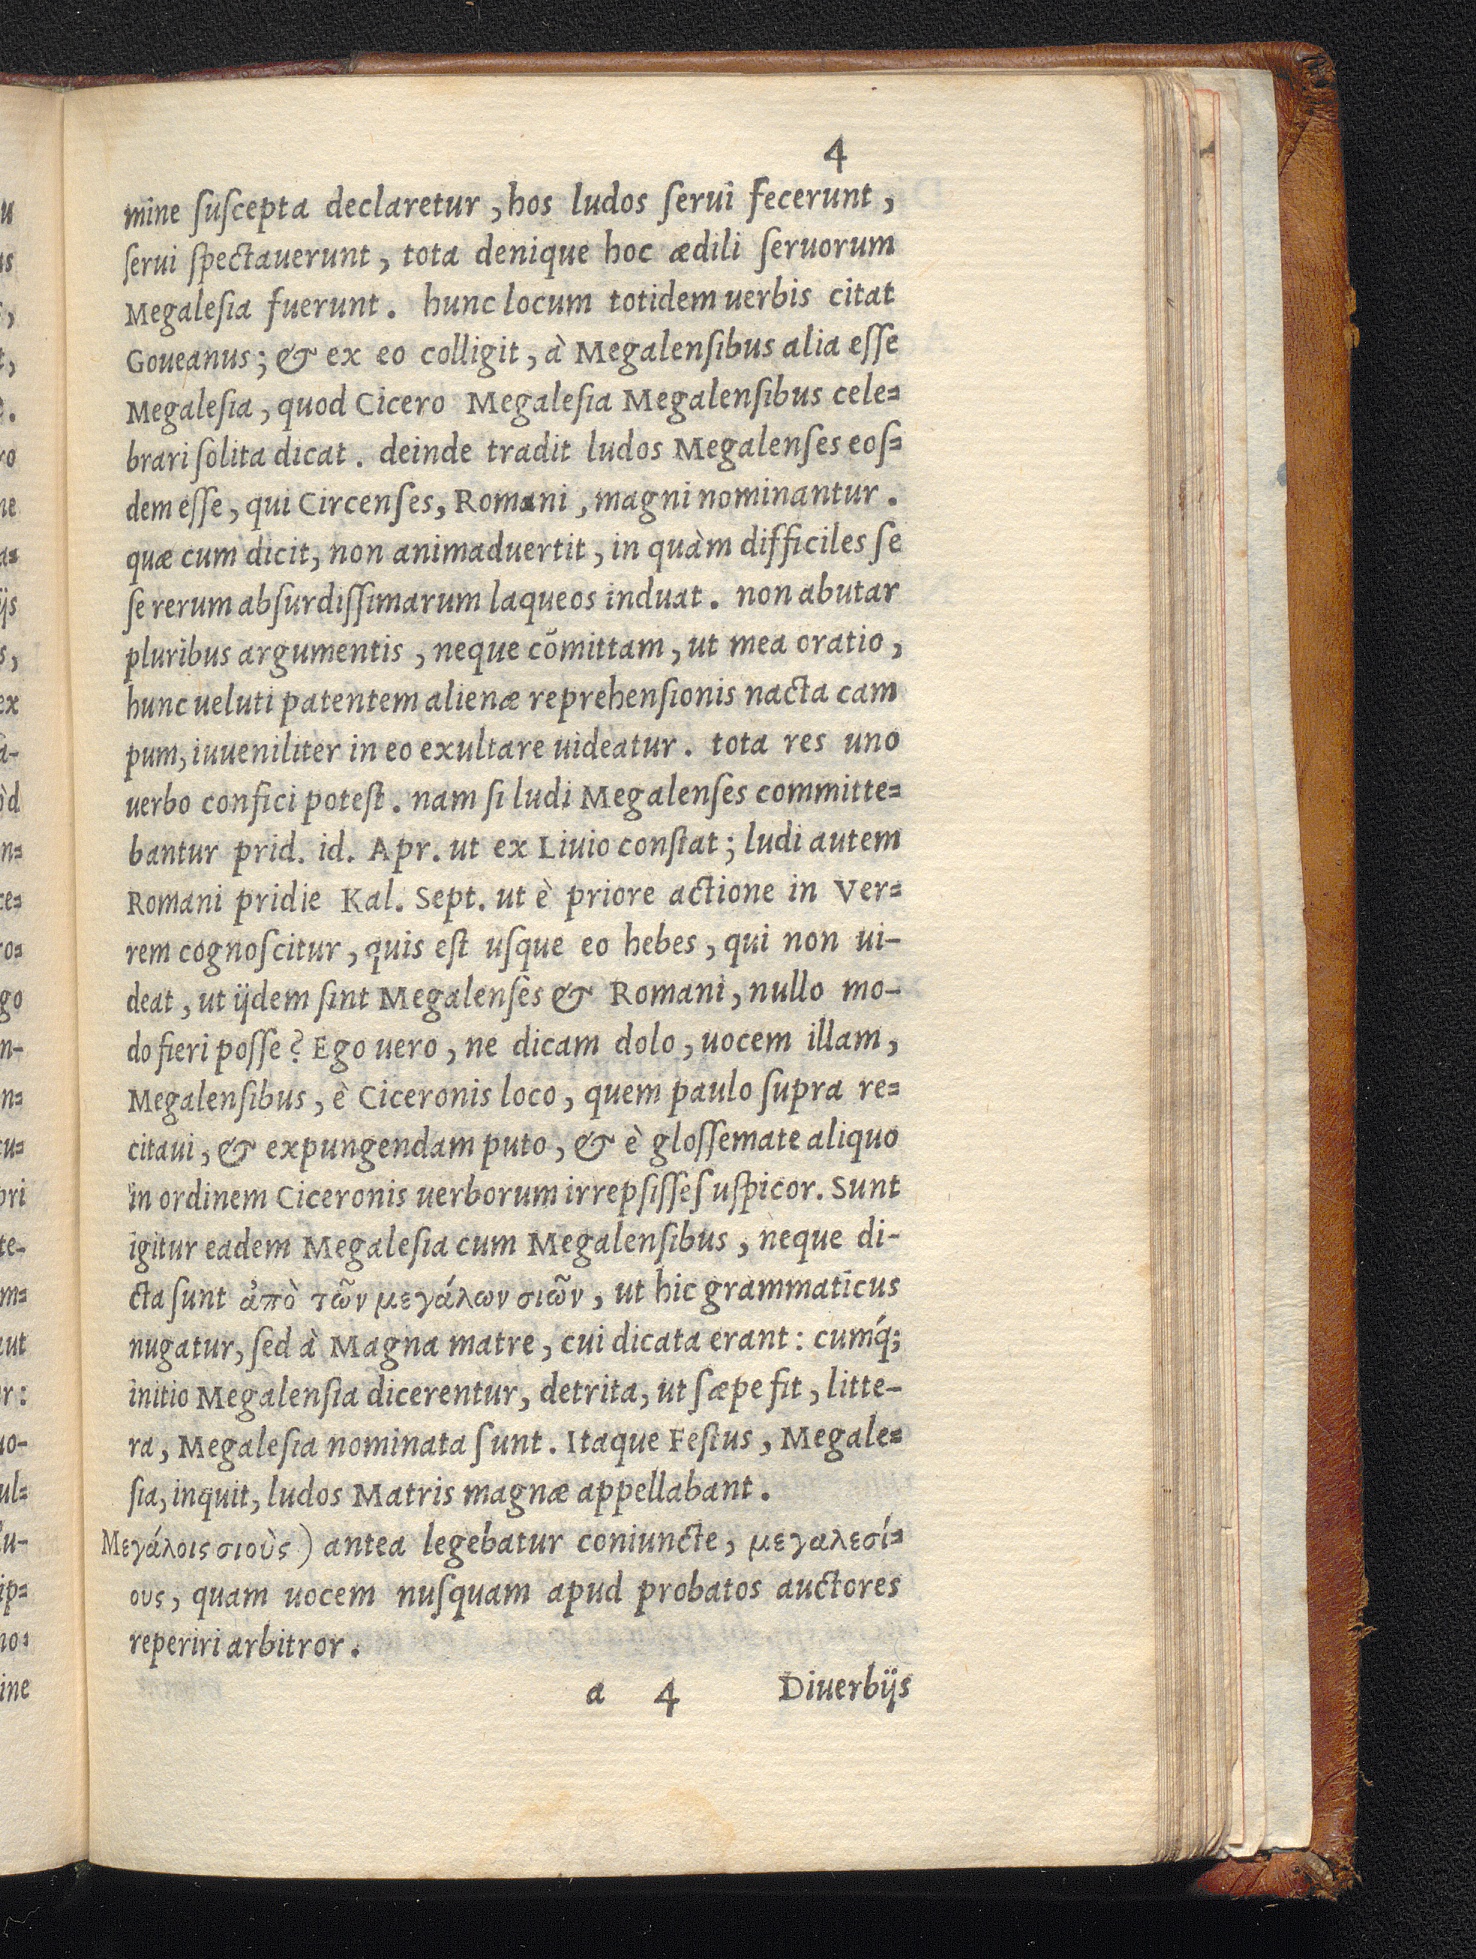 4
mine ſuſcepta declaretur, hos ludos ſerui fecerunt,
ſerui ſpectauerunt, tota denique hoc ædili ſeruorum
Megaleſia fuerunt. hunc locum totidem uerbis citat
Goueanus; & ex eo colligit, à Megalenſibus alia eſſe
Megaleſia, quod Cicero Megaleſia Megalenſibus cele=
brari ſolita dicat. deinde tradit ludos Megalenſes eoſ=
dem eſſe, qui Circenſes, Romani, magni nominantur.
quæ cum dicit, non animaduertit, in quàm difficiles ſe
ſe rerum abſurdiſſimarum laqueos induat. non abutar
pluribus argumentis, neque cõmittam, ut mea oratio,
hunc ueluti patentem alienæ reprehenſionis nacta cam
pum, iuueniliter in eo exultare uideatur. tota res uno
uerbo confici poteſt. nam ſi ludi Megalenſes committe=
bantur prid. id. Apr. ut ex Liuio conſtat; ludi autem
Romani pridie Kal. Sept. ut è priore actione in Ver=
rem cognoſcitur, quis eſt uſque eo hebes, qui non ui-
deat, ut ijdem ſint Megalenſes & Romani, nullo mo-
do fieri poſſe? Ego uero, ne dicam dolo, uocem illam,
Megalenſibus, è Ciceronis loco, quem paulo ſupra re=
citaui, & expungendam puto, & è gloſſemate aliquo
in ordinem Ciceronis uerborum irrepſiſſe ſuſpicor. Sunt
igitur eadem Megaleſia cum Megalenſibus, neque di-
cta ſunt ἀπὸ τῶν μεγάλων σιῶν, ut hic grammaticus
nugatur, ſed à Magna matre, cui dicata erant: cumq́;
initio Megalenſia dicerentur, detrita, ut ſæpe fit, litte-
ra, Megaleſia nominata ſunt. Itaque Feſtus, Megale=
ſia, inquit, ludos Matris magnæ appellabant.
Μεγάλοις σιοὺς) antea legebatur coniuncte, μεγαλεσί=
ους, quam uocem nuſquam apud probatos auctores
reperiri arbitror.
a 4 Diuerbijs